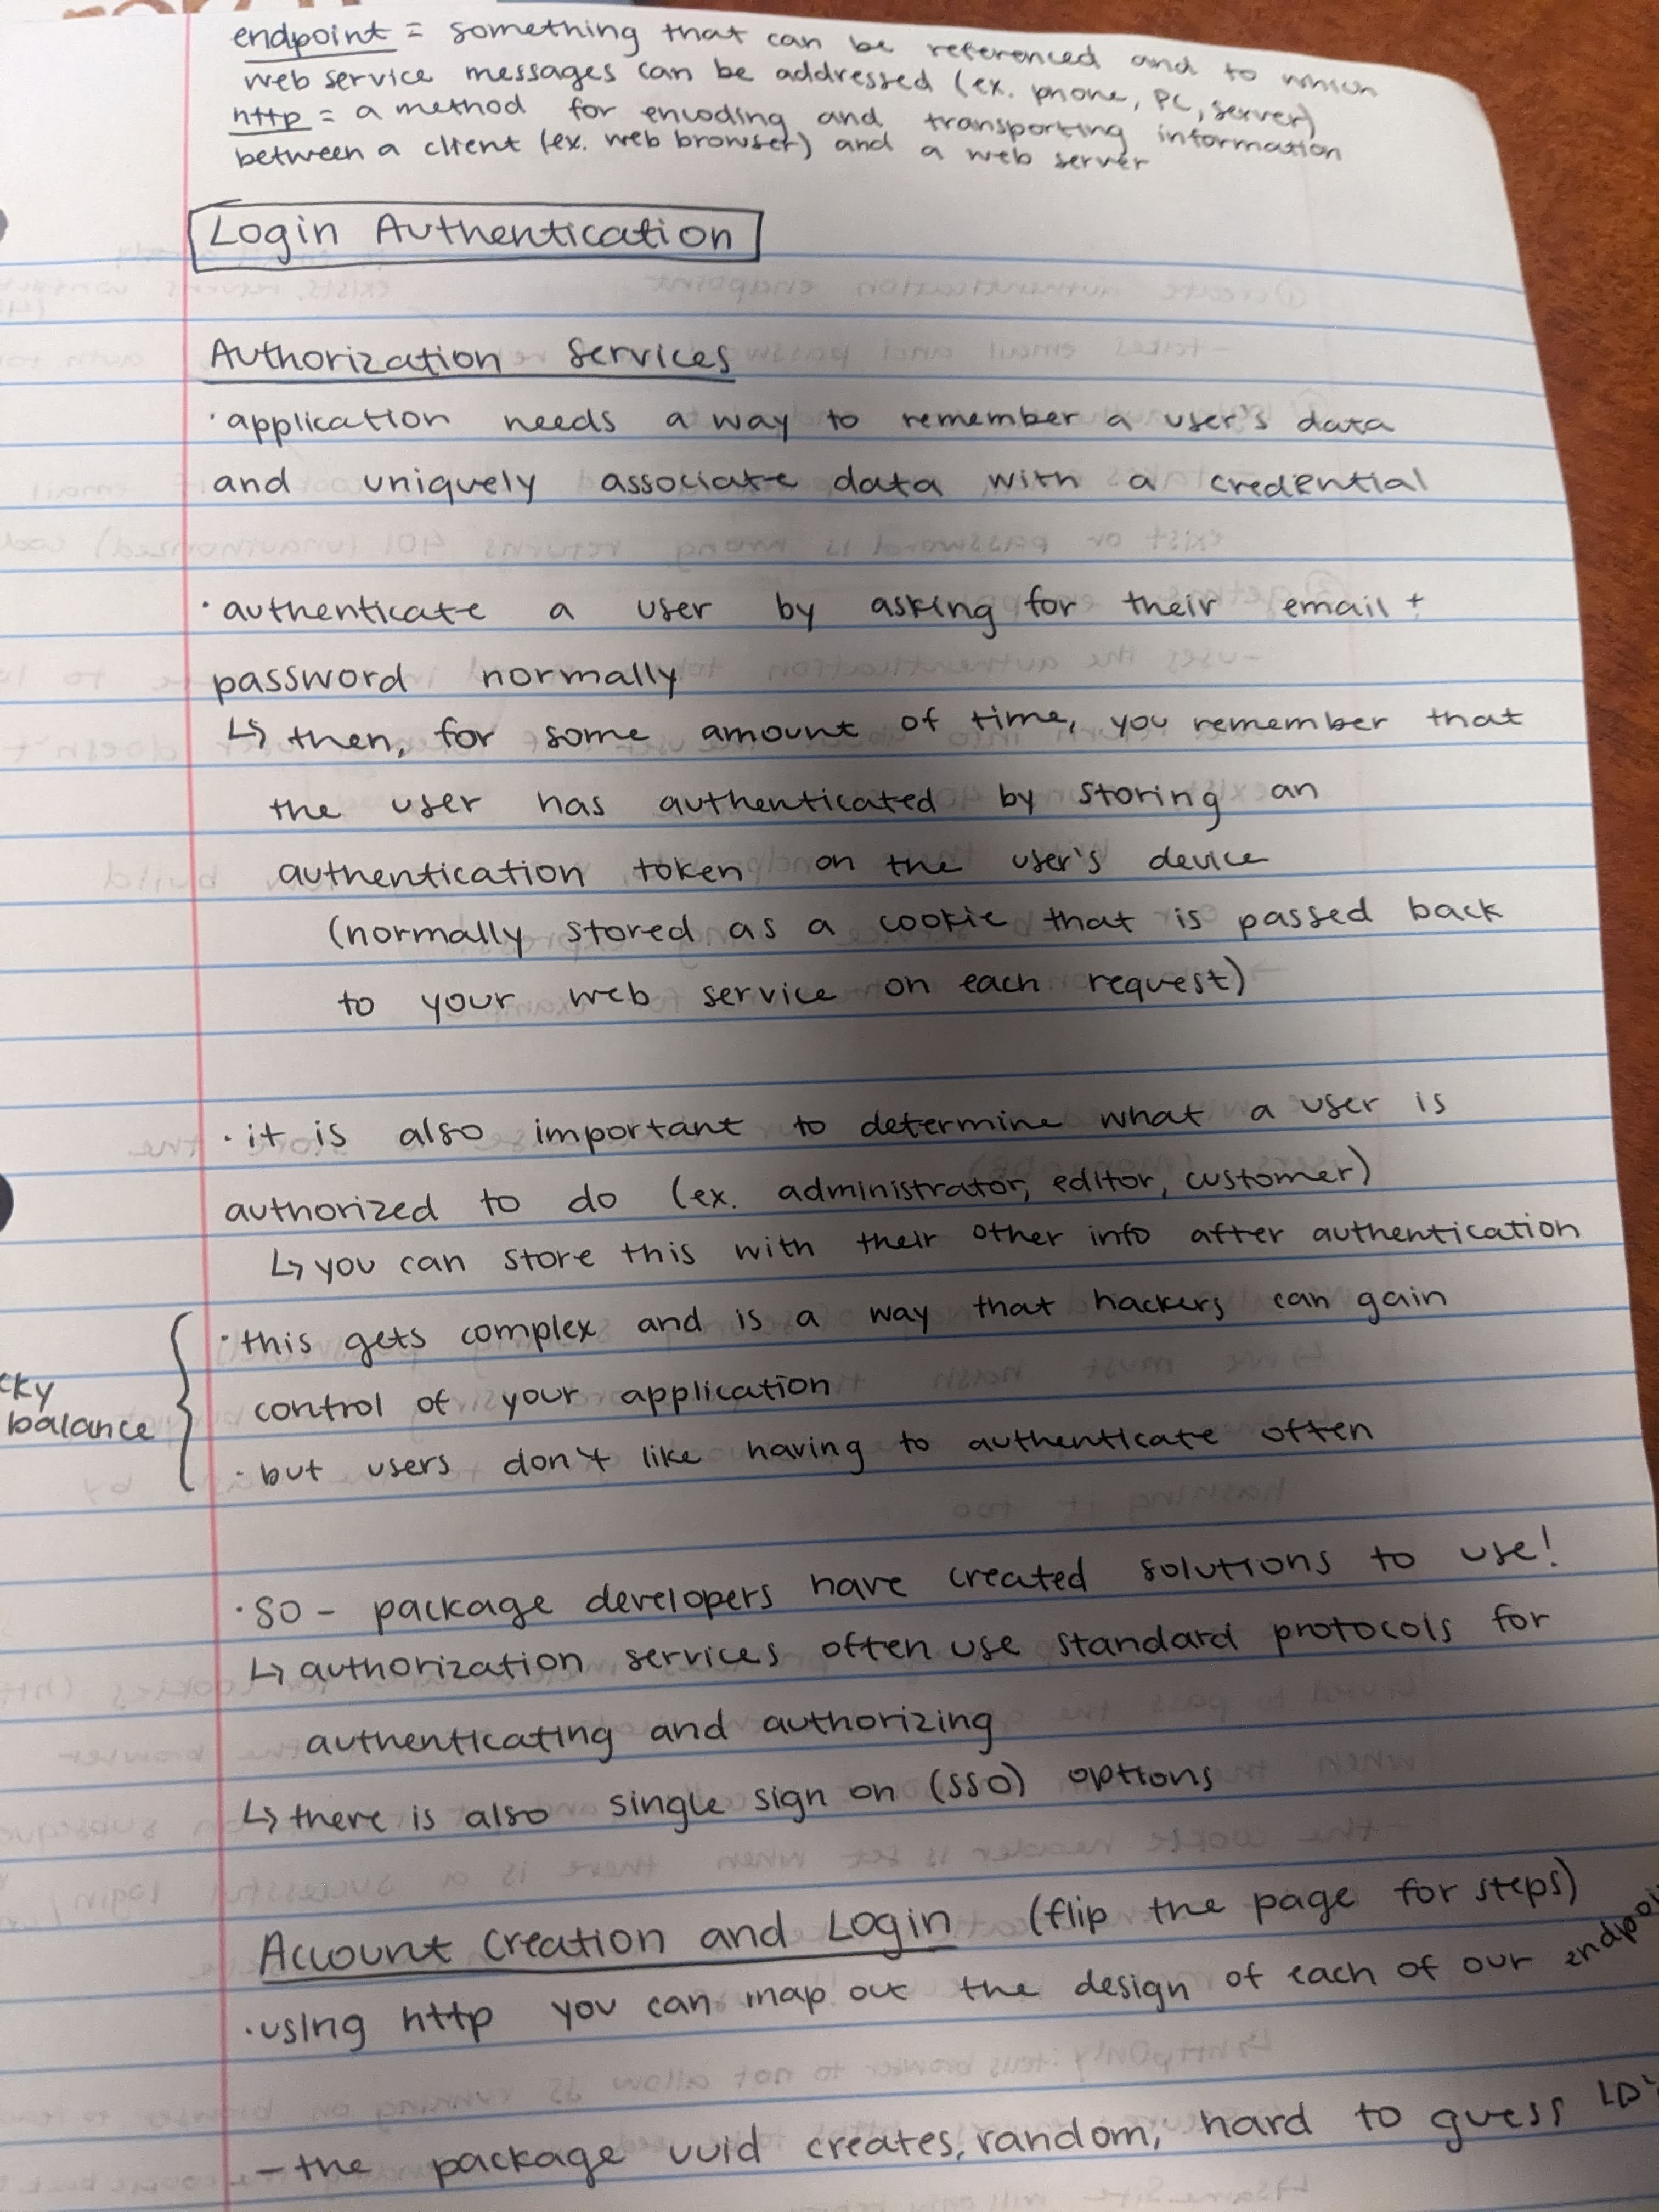 endpoint = something that can be referenced and to which
web service messages can be addressed (ex. phone, PC, server)
http = a method for encoding and transporting information
between a client (ex. web browser) and a web server
Login Authentication
Authorization Services
· application needs a way to remember a user's data
and uniquely associate data with a credential
· authenticate a user by asking for their email +
password normally
↳ then, for some amount of time, you remember that
the user has authenticated by storing an
authentication token on the user's device
(normally stored as a cookie that is passed back
to your web service on each request)
· it is also important to determine what a user is
authorized to do (ex. administrator, editor, customer)
↳ you can store this with their other info after authentication
· this gets complex and is a way that hackers can gain
control of your application
cky
balance
· but users don't like having to authenticate often
· so - package developers have created solutions to use!
↳ authorization services often use standard protocols for
authenticating and authorizing
↳ there is also single sign on (SSO) options
Account Creation and Login (flip the page for steps)
· using http you can map out the design of each of our endpoi
- the package uuid creates, random, hard to guess ID's